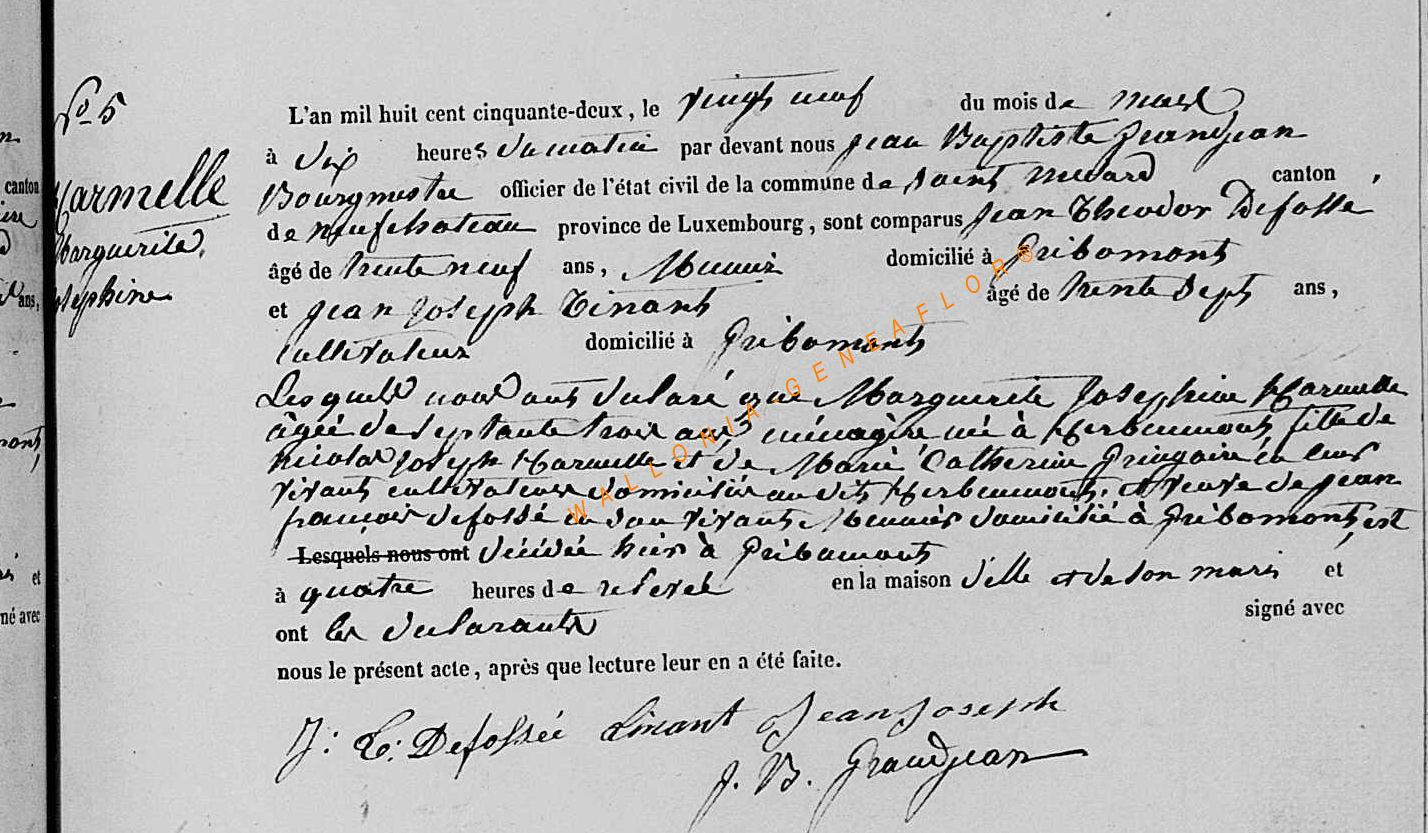 No 5
Harmelle
Marguerite,
Josephine
L'an mil huit cent cinquante-deux, le vingt neuf du mois de mars
à dix heures du matin par devant nous jean Baptiste Grandjean
Bourgmestre officier de l'état civil de la commune de saint medard canton
de neufchateau province de Luxembourg, sont comparus jean Theodor Defossé,
âgé de trente neuf ans, Meunier domicilié à Gribomont
et jean joseph Tinant âgé de trente sept ans,
cultivateur domicilié à Gribomont
Lesquels nous ont declaré que Marguerite Josephine Harmelle
âgée de septante trois ans ménagère née à Herbeumont fille de
nicolas joseph Harmelle et de Marie Catherine en leurs
vivants cultivateurs domiciliés au dit Herbeumont, et veuve de jean
françois defossé en son vivant Meunier domicilié à Gribomont, est
Lesquels nous ont décédée hier à Gribomont
à quatre heures de relevée en la maison d'elle et de son maris et
ont les declarants signé avec
nous le présent acte, après que lecture leur en a été faite.
J: T: Defossée Tinant Jean joseph
J. B. Grandjean
canton
ans,
et
né avec
WALLONIA-GENEAFLOR®